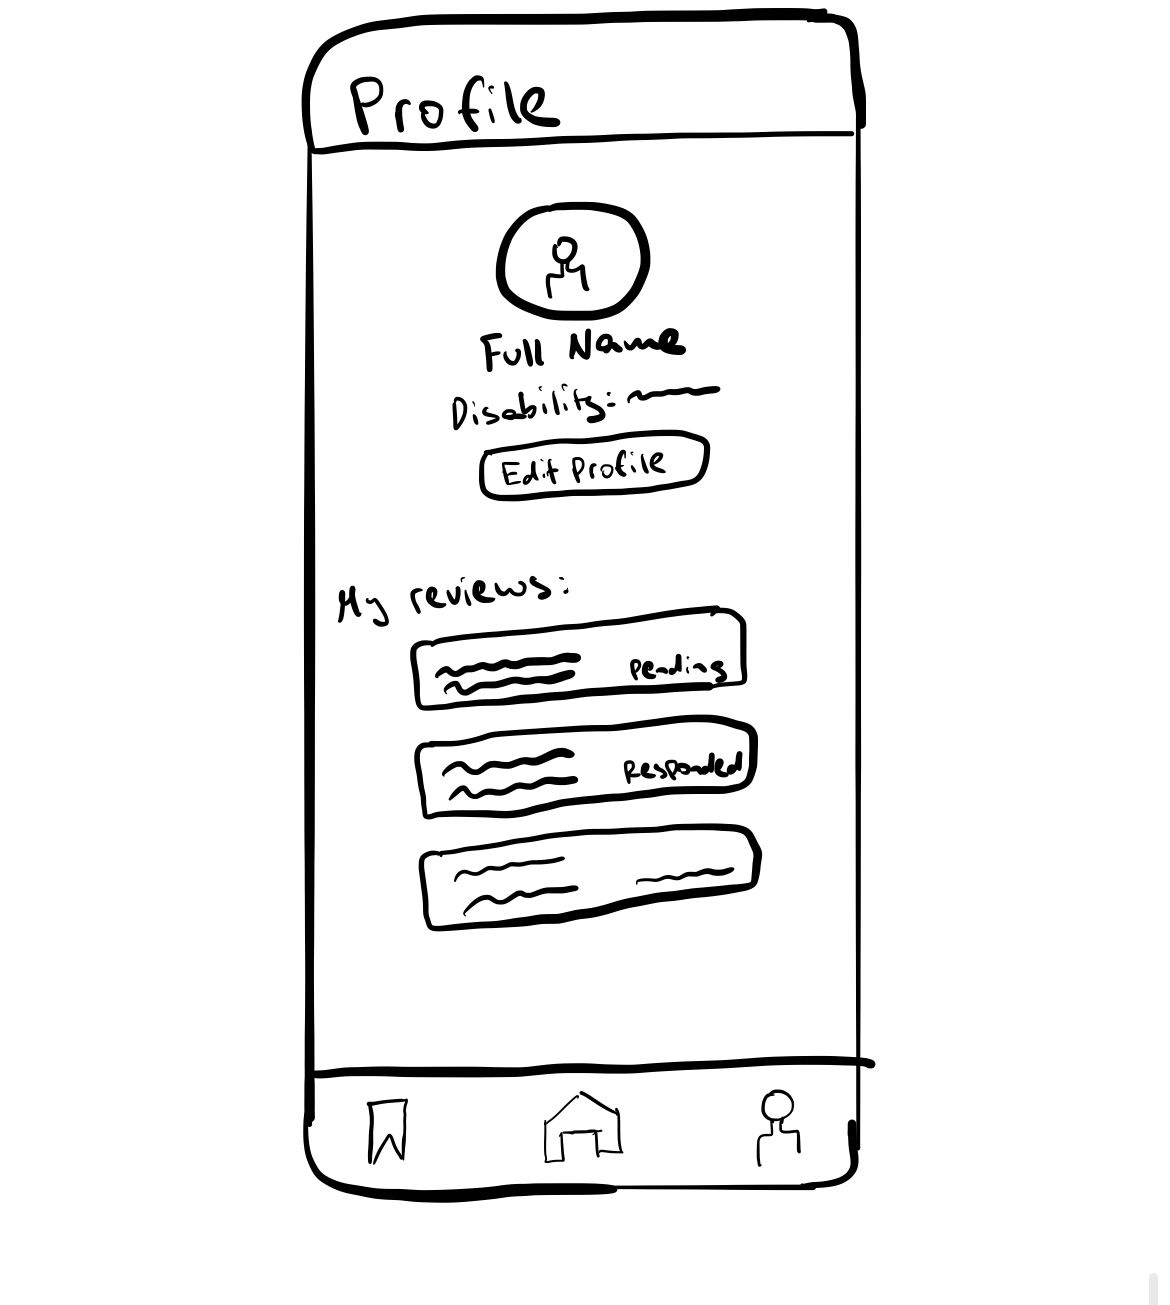 Profile
Full Name
Disability:
Edit Profile
My reviews:
Pending
Responded